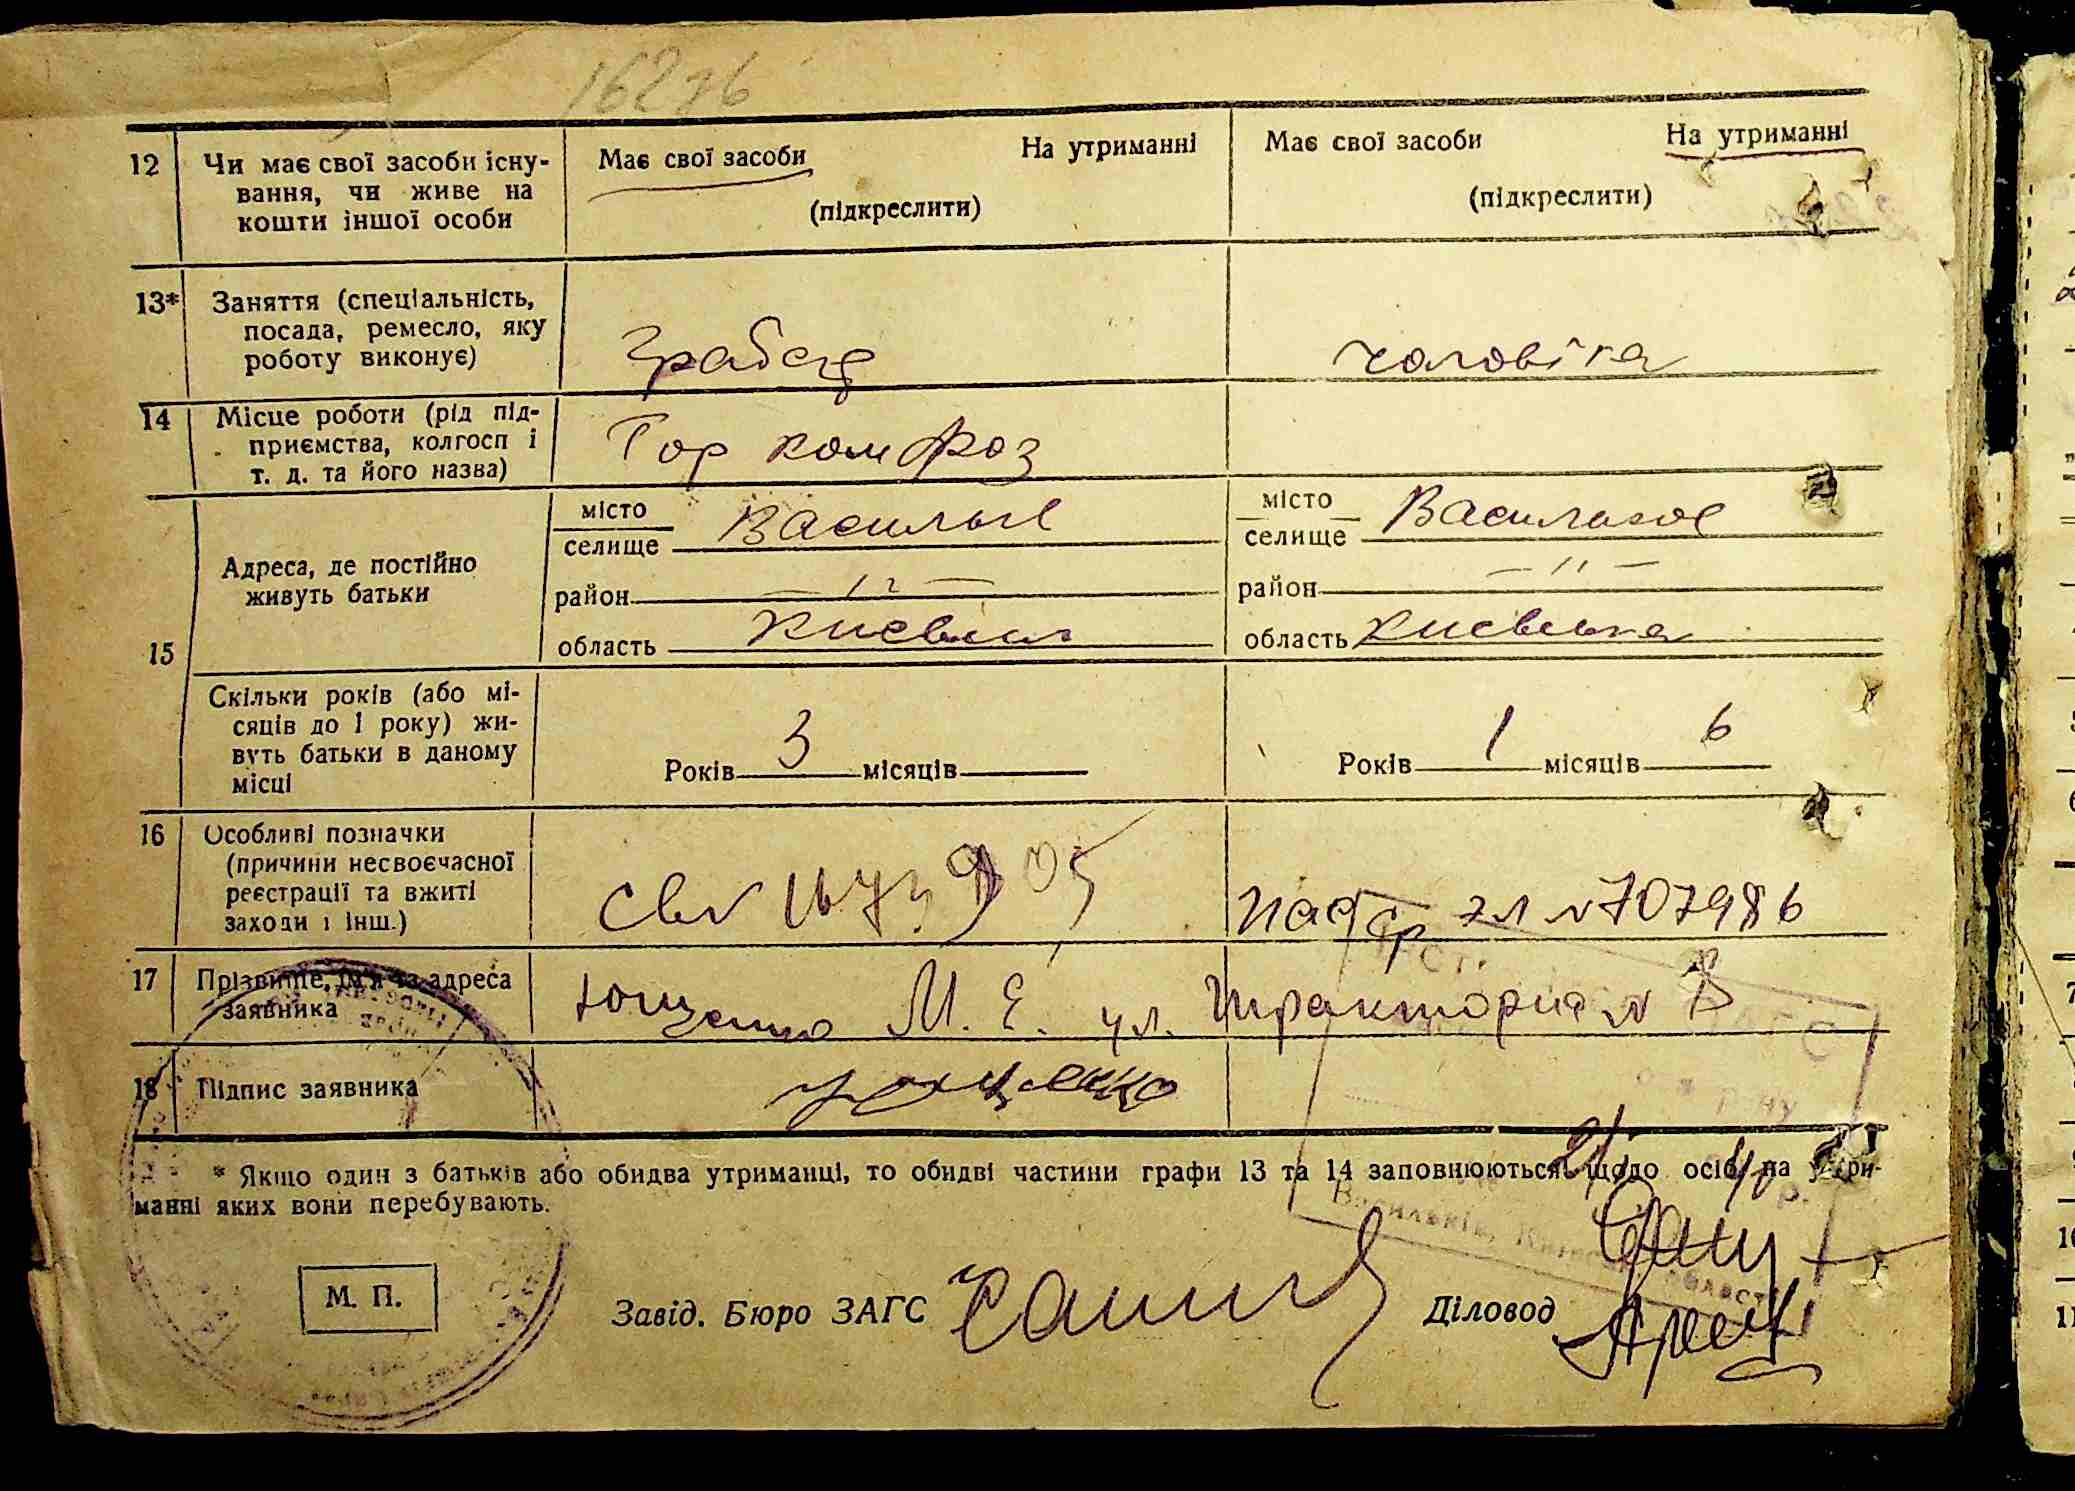 12 Чи має свої засоби існу- Має свої засоби На утриманні Має свої засоби На утриманні
вання, чи живе на
кошти іншої особи (підкреслити) (підкреслити)
13* Заняття (спеціальність,
посада, ремесло, яку
роботу виконує) чоловіка
14 Місце роботи (рід під-
приємства, колгосп і Гор
т. д. та його назва)
місто Васильк місто
селище селище
Адреса, де постійно
живуть батьки район район — " —
15 область область Київська
Скільки років (або мі-
сяців до 1 року) жи-
вуть батьки в даному Років 3 місяців Років 1 місяців 6
місці
16 Особливі позначки
(причини несвоєчасної
реєстрації та вжиті
заходи і інш.) №707986
17 Прізвище, ім'я та адреса
заявника Ющенко М. Е. ул. №
18 Підпис заявника Ющенко
* Якщо один з батьків або обидва утриманці, то обидві частини графи 13 та 14 заповнюються щодо осіб, на утри-
манні яких вони перебувають.
М. П. Завід. Бюро ЗАГС Діловод